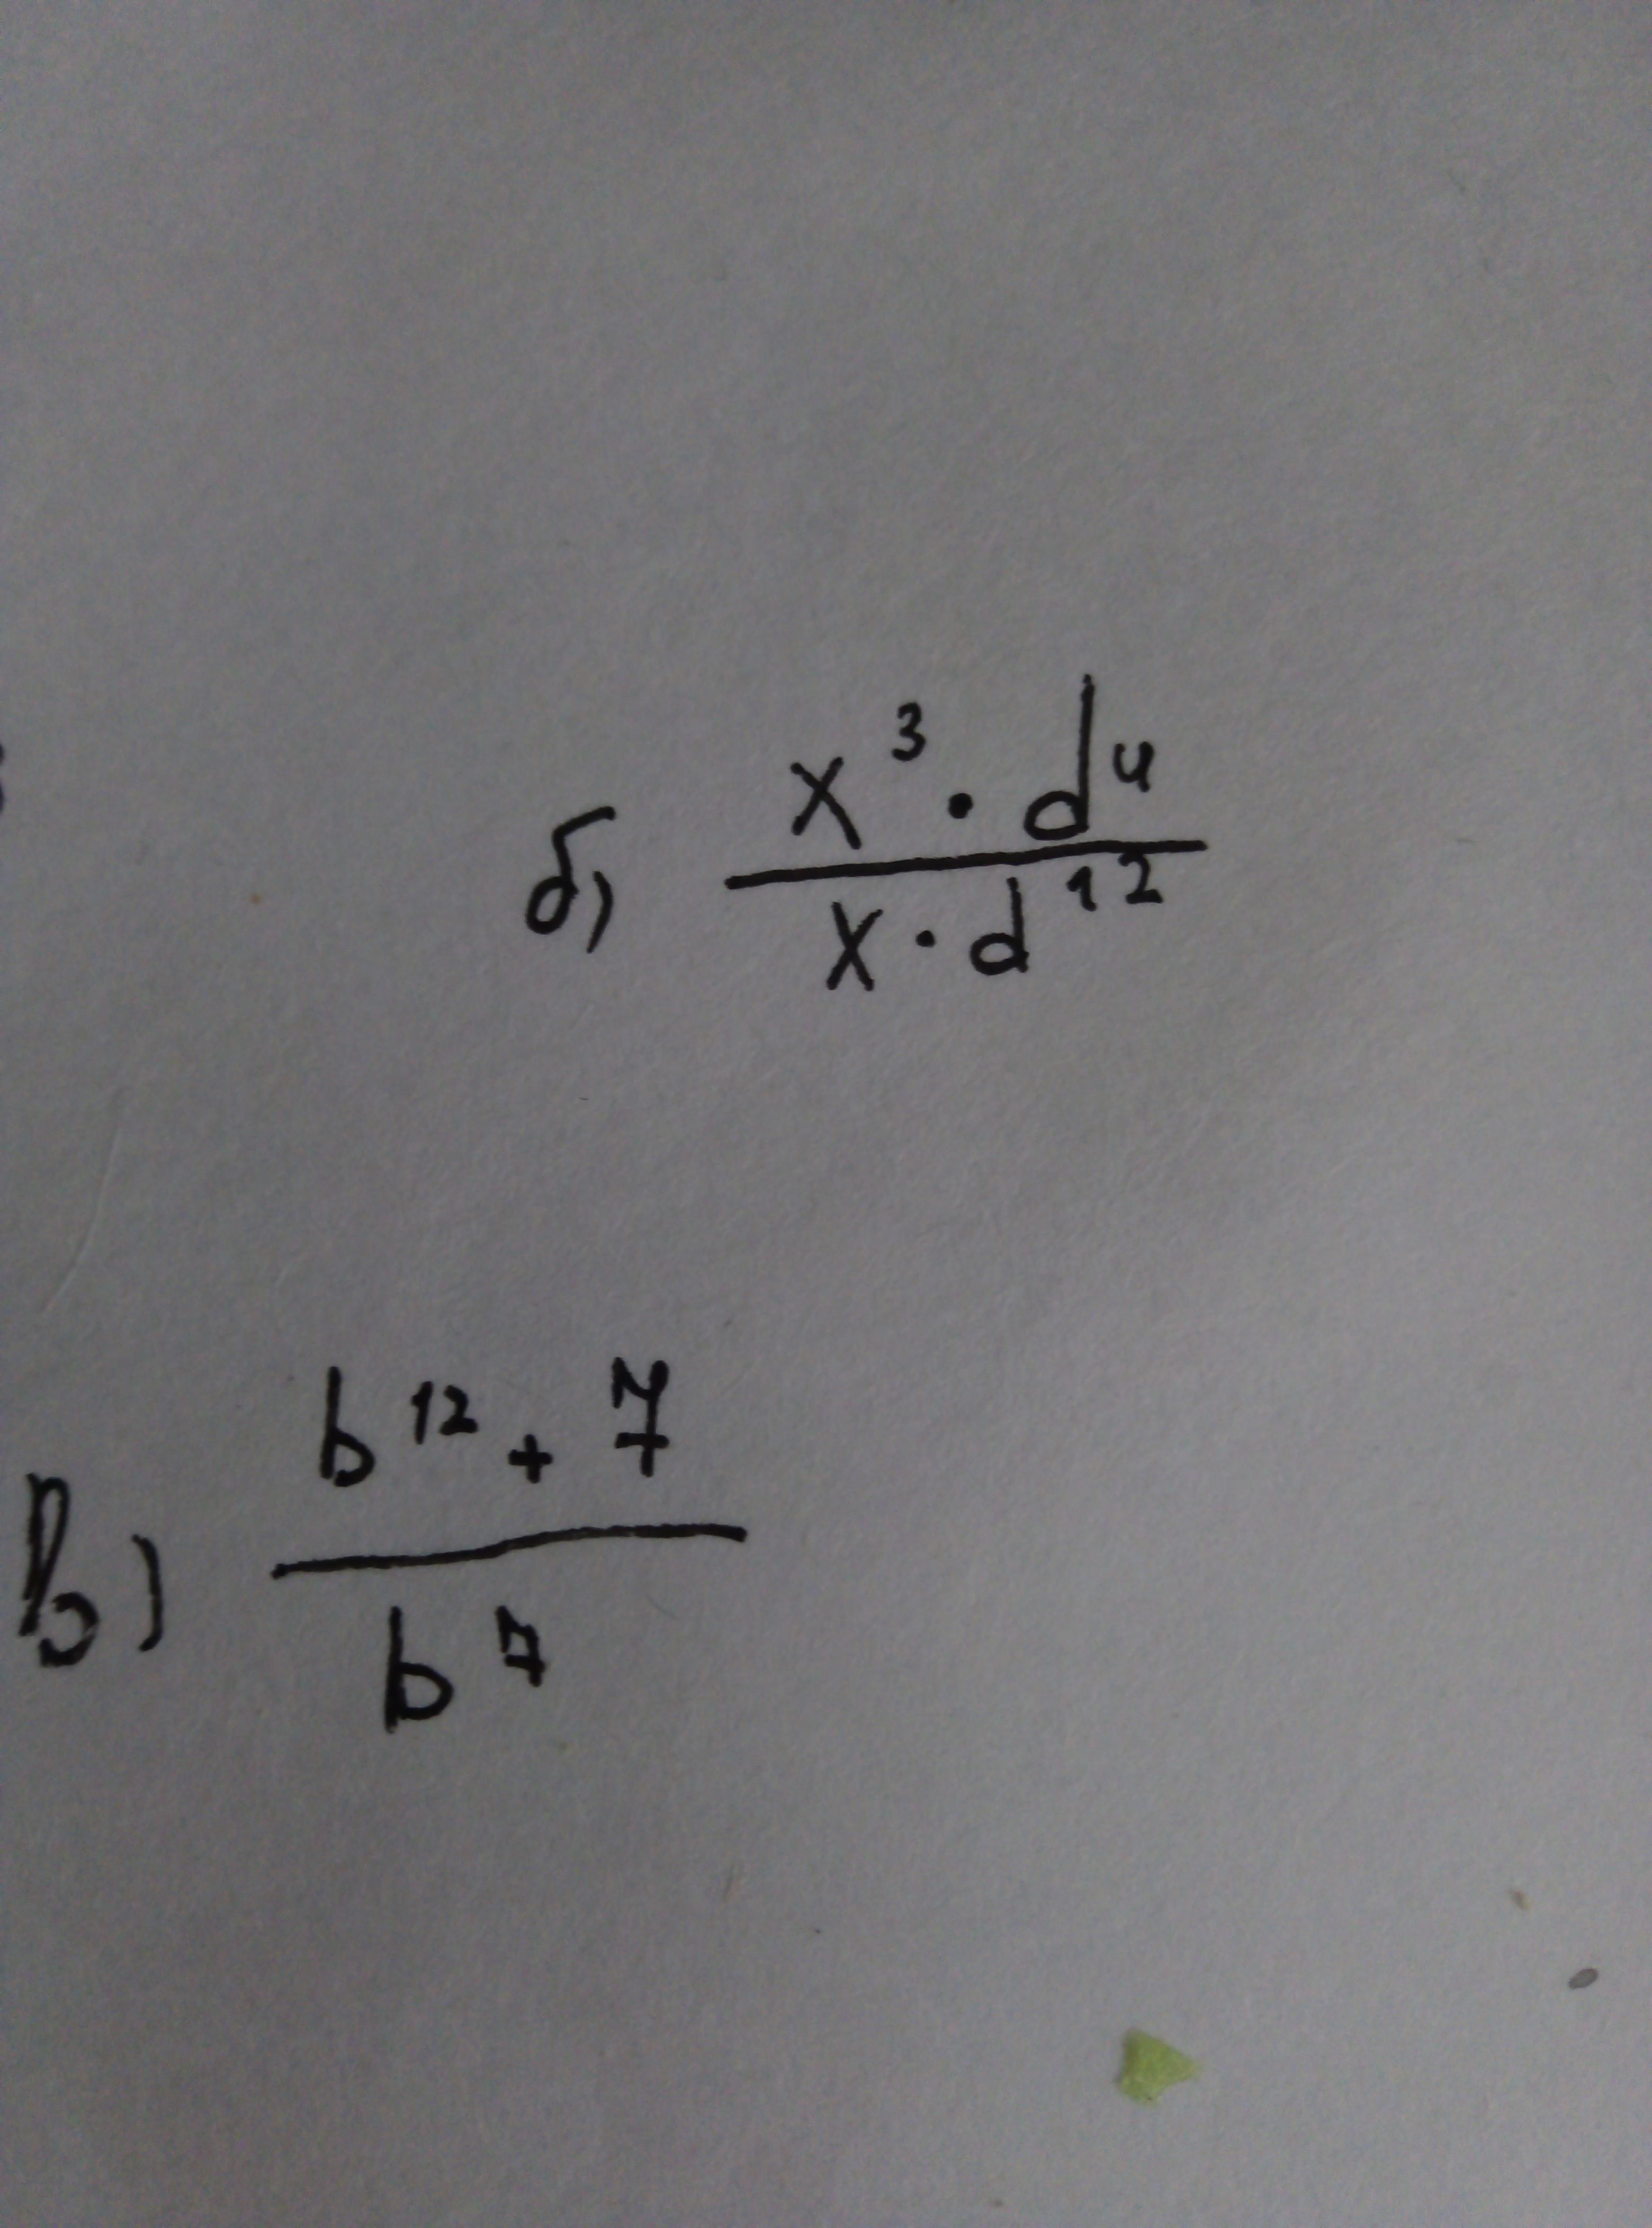 б) x³ · d⁴
x · d¹²
в) b¹² + 7
b⁷